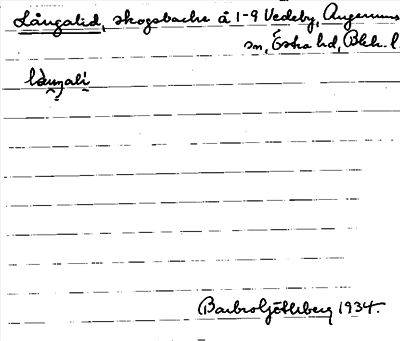 Långalid, skogsbacke å 1-9 Vedeby, Augerums
sn, Östra hd, Blek. l.
lånₒgali
Barbro Götlberg 1934.